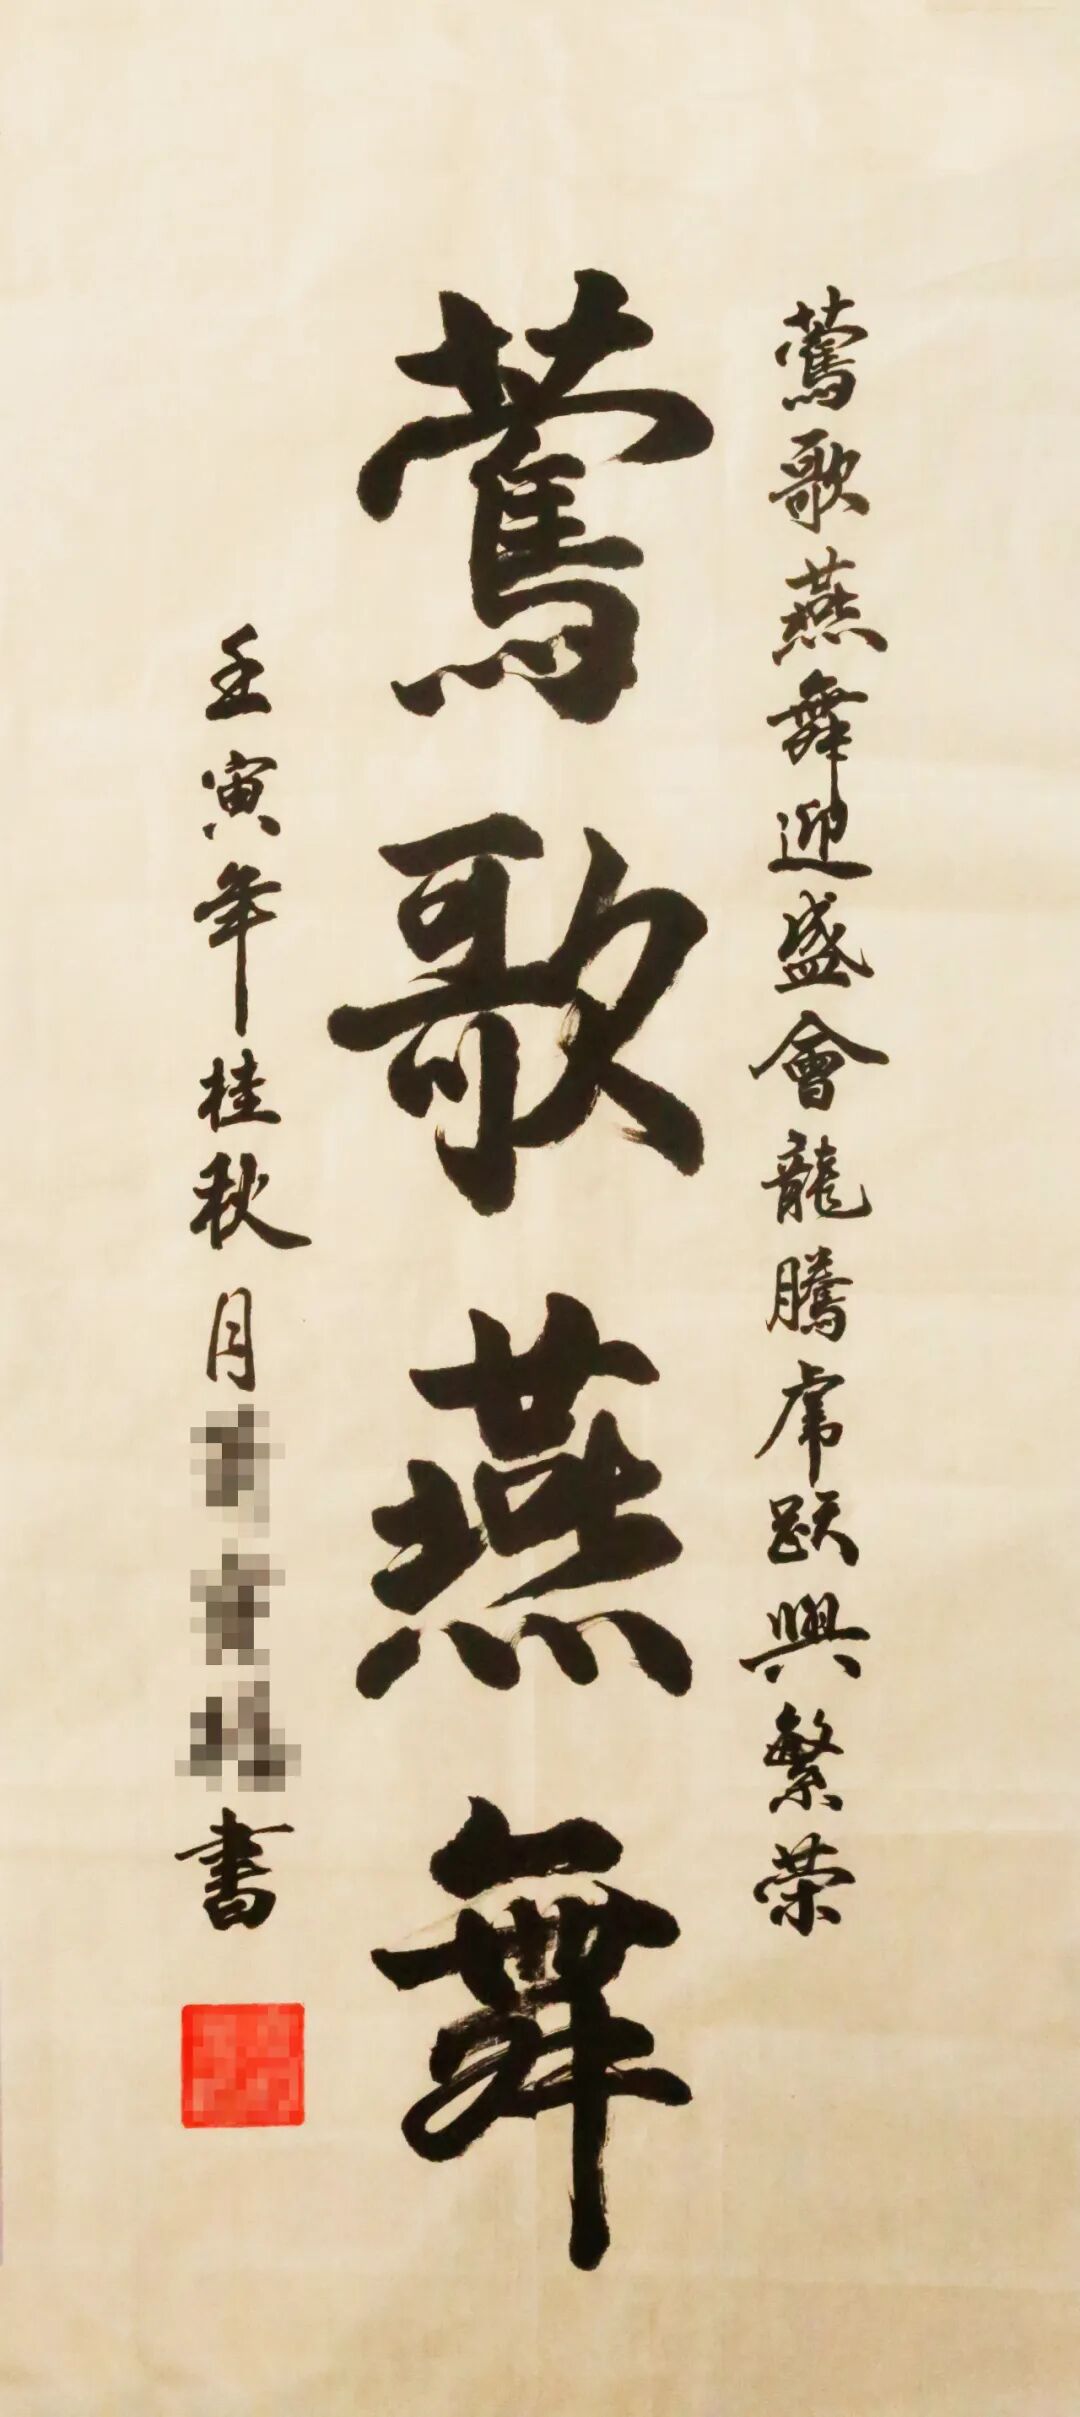 鶯歌燕舞迎盛會龍騰虎躍興繁荣
鶯歌燕舞
壬寅年桂秋月
書